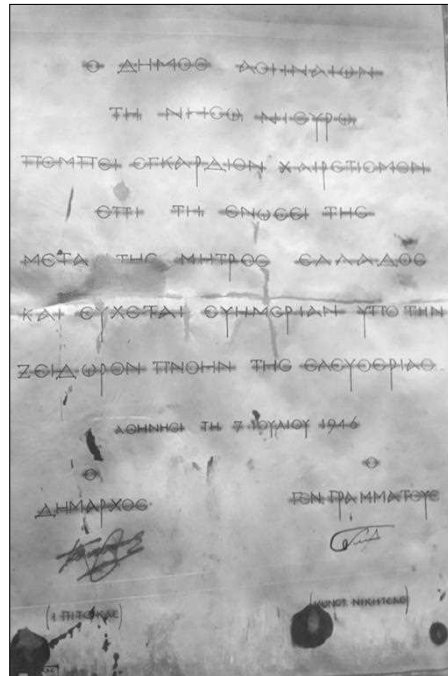 Ο ΔΗΜΟΣ ΑΘΗΝΑΙΩΝ
ΤΗ ΝΗΣΩ ΝΙΣΥΡΩ
ΠΕΜΠΕΙ ΕΓΚΑΡΔΙΟΝ ΧΑΙΡΕΤΙΣΜΟΝ
ΕΠΙ ΤΗ ΕΝΩΣΕΙ ΤΗΣ
ΜΕΤΑ ΤΗΣ ΜΗΤΡΟΣ ΕΛΛΑΔΟΣ
ΚΑΙ ΕΥΧΕΤΑΙ ΕΥΗΜΕΡΙΑΝ ΥΠΟ ΤΗΝ
ΖΕΙΔΩΡΟΝ ΠΝΟΗΝ ΤΗΣ ΕΛΕΥΘΕΡΙΑΣ
ΑΘΗΝΗΣΙ ΤΗ 7 ΙΟΥΛΙΟΥ 1946
Ο
Ο
ΔΗΜΑΡΧΟΣ
ΓΕΝ. ΓΡΑΜΜΑΤΕΥΣ